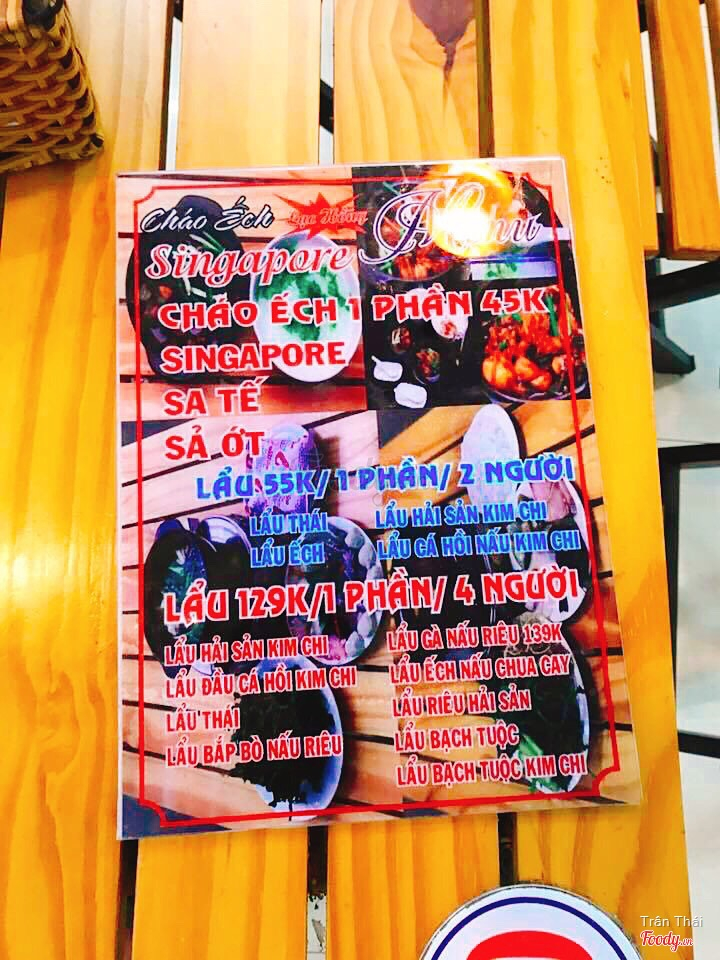 Cháo Ếch Lạc Hồng Menu
Singapore
CHÁO ẾCH 1 PHẦN 45K
SINGAPORE
SA TẾ
SẢ ỚT
LẨU 55K/ 1 PHẦN/ 2 NGƯỜI
LẨU THÁI LẨU HẢI SẢN KIM CHI
LẨU ẾCH LẨU CÁ HỒI NẤU KIM CHI
LẨU 129K/1 PHẦN/ 4 NGƯỜI
LẨU HẢI SẢN KIM CHI LẨU GÀ NẤU RIÊU 139K
LẨU ĐẦU CÁ HỒI KIM CHI LẨU ẾCH NẤU CHUA CAY
LẨU THÁI LẨU RIÊU HẢI SẢN
LẨU BẮP BÒ NẤU RIÊU LẨU BẠCH TUỘC
LẨU BẠCH TUỘC KIM CHI
Trân Thái
Foody.vn